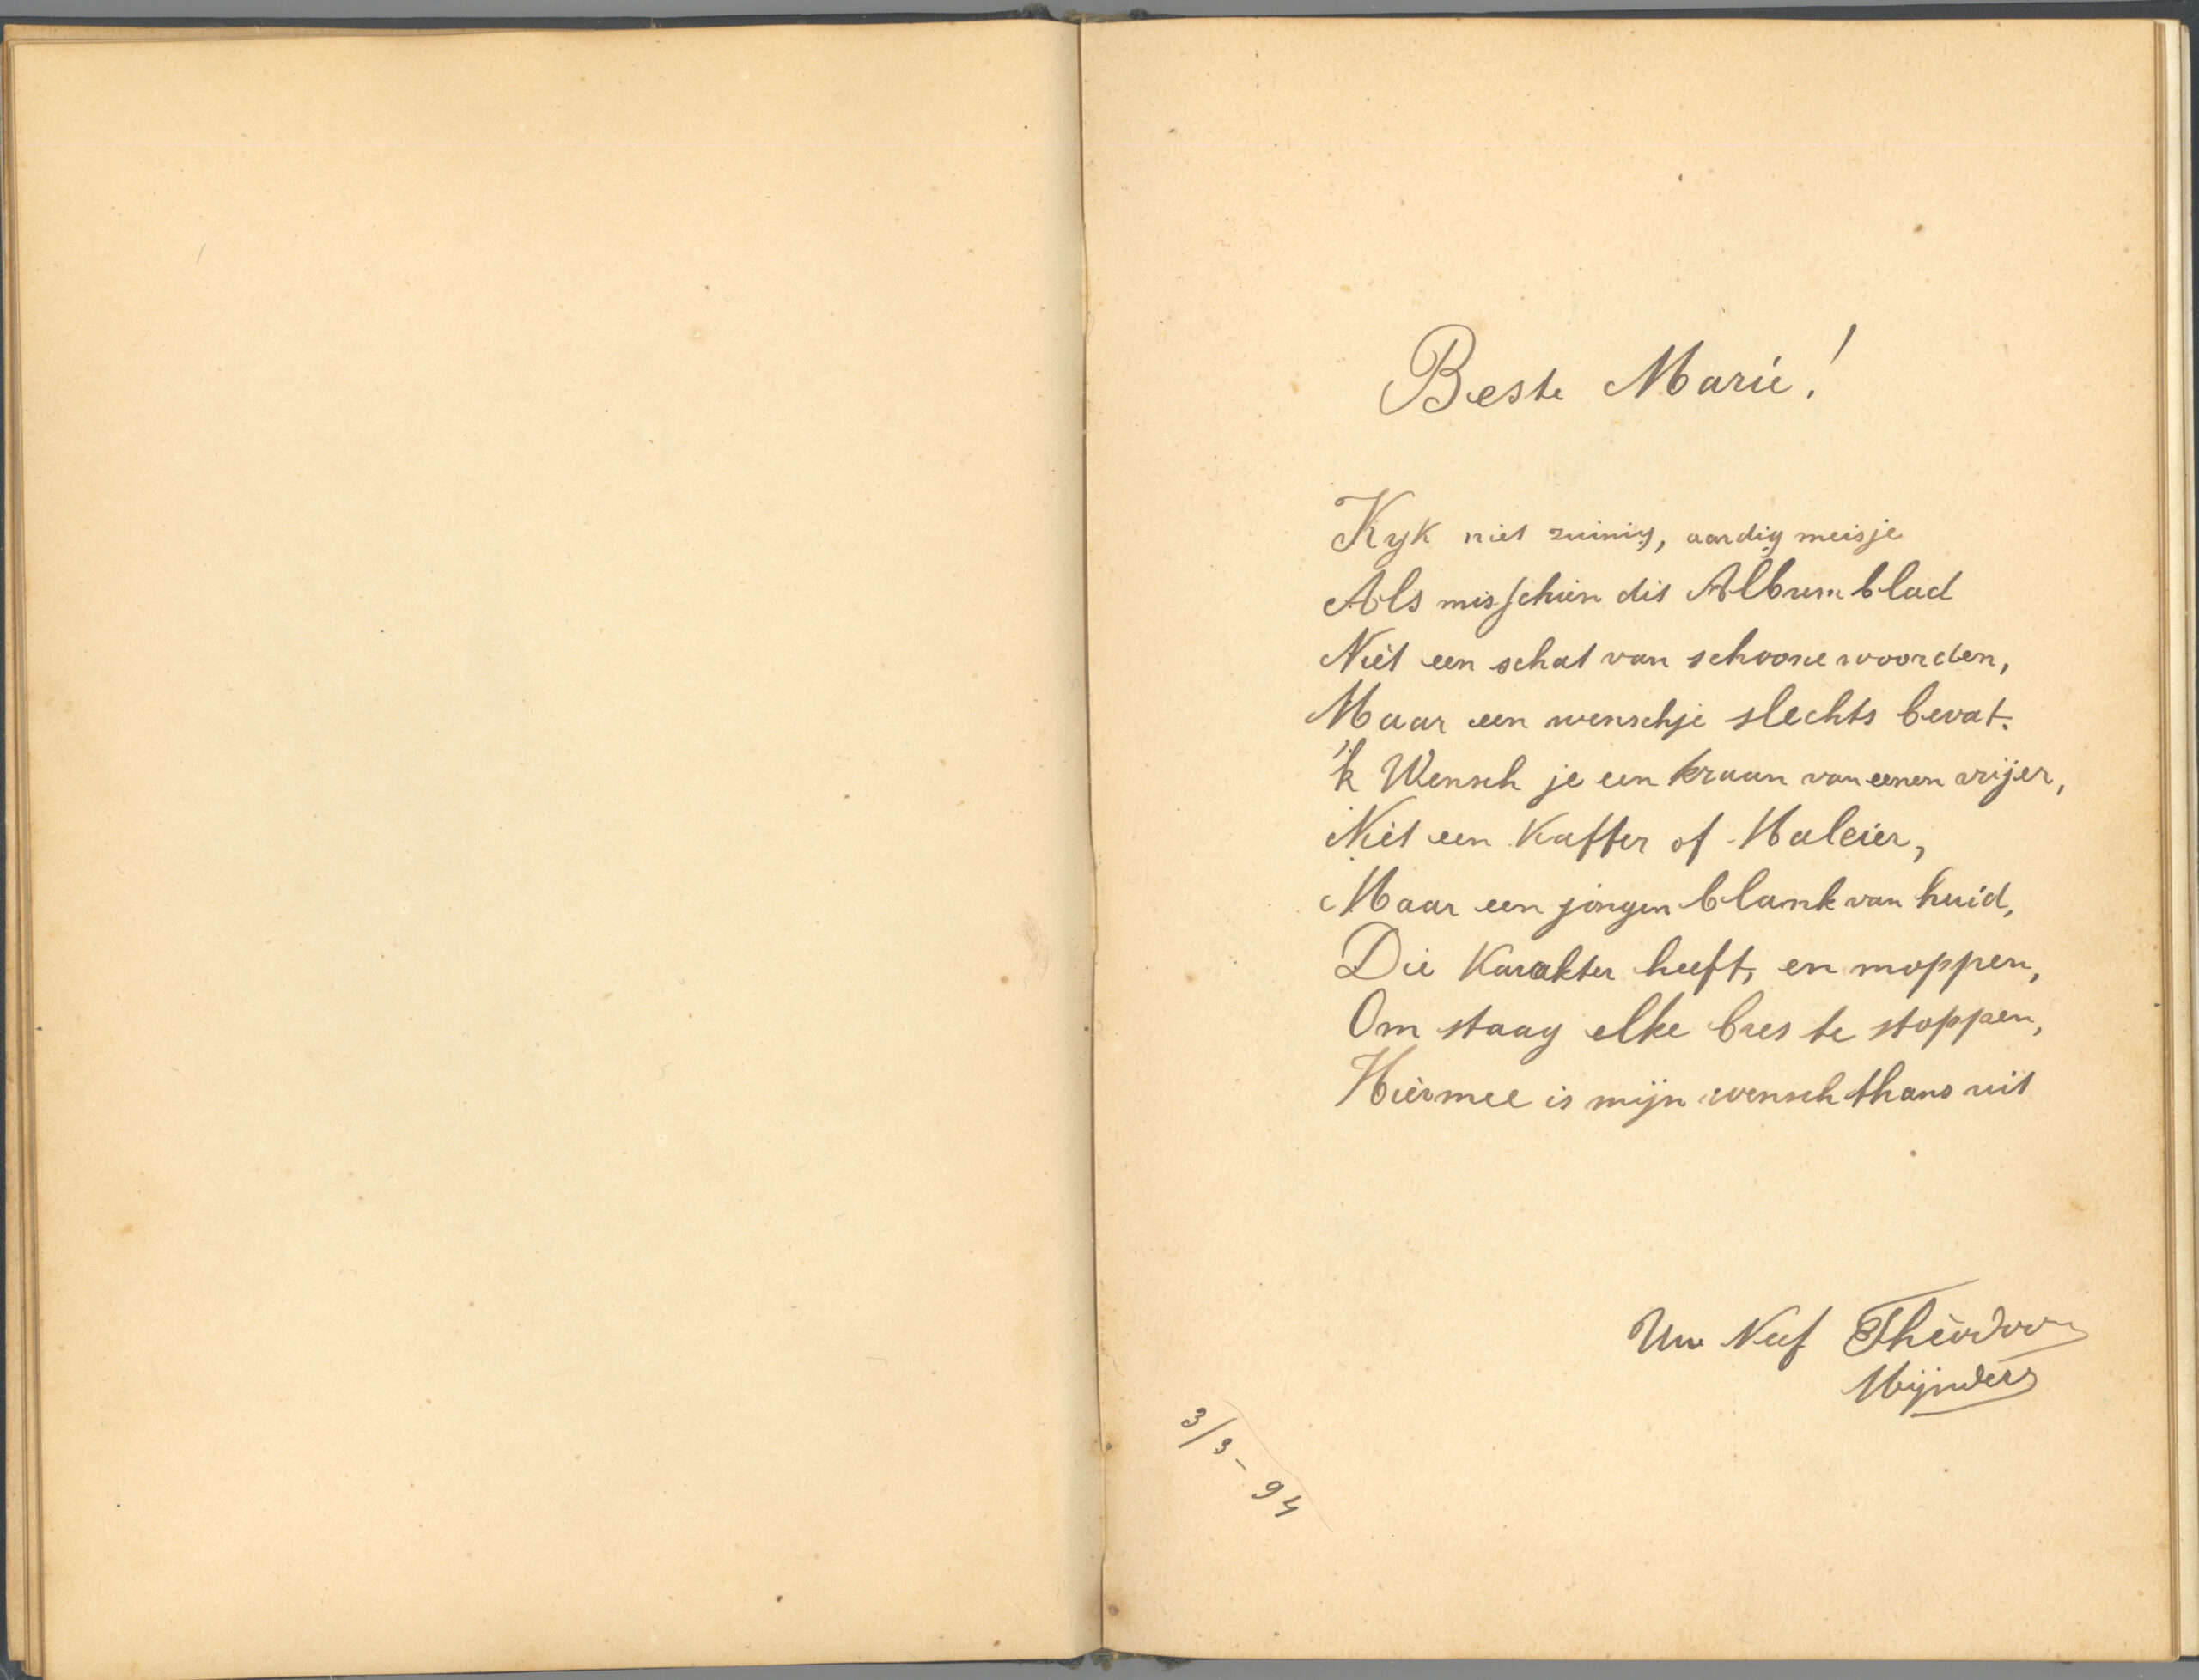 Beste Marie!
Kyk niet zuinig, aardig meisje
Als misschien dit Albumblad
Niet een schat van schoone woorden,
Maar een wenschje slechts bevat.
'k Wensch je een kraan van eenen vrijer,
Niet een Kaffer of Maleier,
Maar een jongen blank van huid,
Die Karakter heeft, en moppen,
Om staag elke bres te stoppen,
Hiermee is mijn wensch thans uit
Uw Neef Theodoor
Mijnders
3/3-94